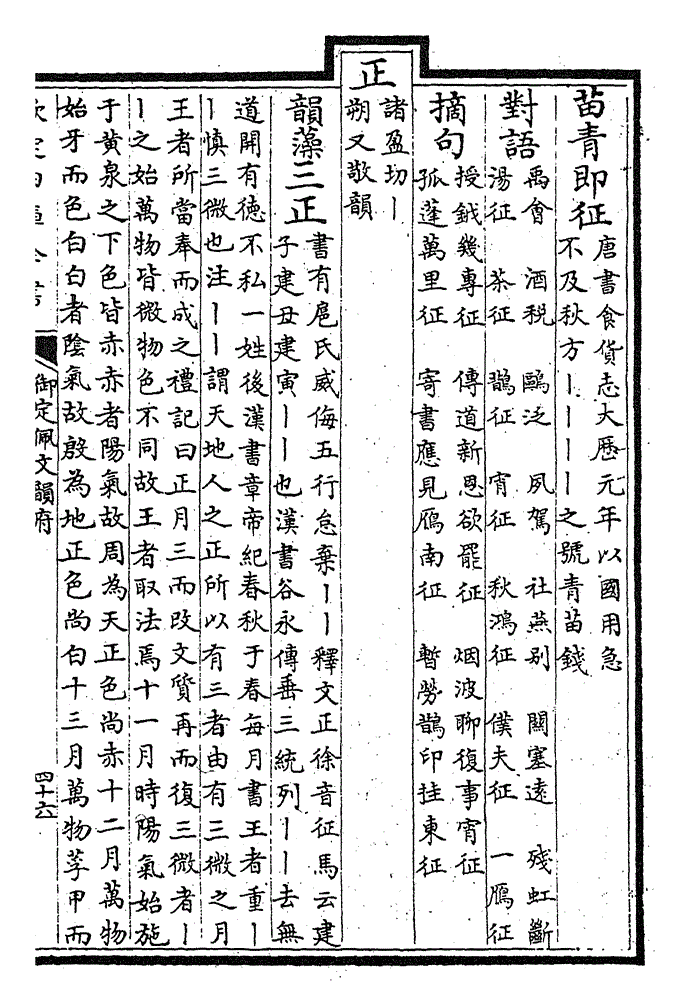 苗青即征
唐書食貨志大厯元年以國用急
不及秋方丨丨丨丨之號青苗錢
對語
禹會　酒税　鷗泛　夙駕　社燕别　關塞遠　殘虹斷
湯征　茶征　鵲征　宵征　秋鴻征　僕夫征　一鴈征
摘句
授鉞幾專征　傳道新恩欲罷征　烟波聊復事宵征
孤蓬萬里征　寄書應見鴈南征　暫勞鵲印挂東征
正
諸盈切丨
朔又敬韻
韻藻三正
書有扈氏威侮五行怠棄丨丨釋文正徐音征馬云建
子建丑建寅丨丨也漢書谷永傳垂三統列丨丨去無
道開有德不私一姓後漢書章帝紀春秋于春每月書王者重丨
丨慎三微也注丨丨謂天地人之正所以有三者由有三微之月
王者所當奉而成之禮記曰正月三而改文質再而復三微者丨
丨之始萬物皆微物色不同故王者取法焉十一月時陽氣始施
于黄泉之下色皆赤赤者陽氣故周為天正色尚赤十二月萬物
始牙而色白白者隂氣故殷為地正色尚白十三月萬物莩甲而
欽定四庫全書
御定佩文韻府
四十六